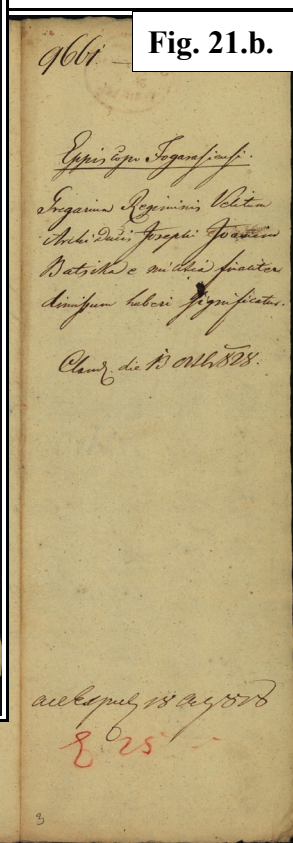 Fig. 21.b.
9661
Eppiscopo Fogarasiensi.
Gregarium Regiminis Velitum
Archi Ducis Josephi Joannem
Batsika e militia finaliter
dimissum haberi significatur.
Claud. die 13 828.
18 828
25
3